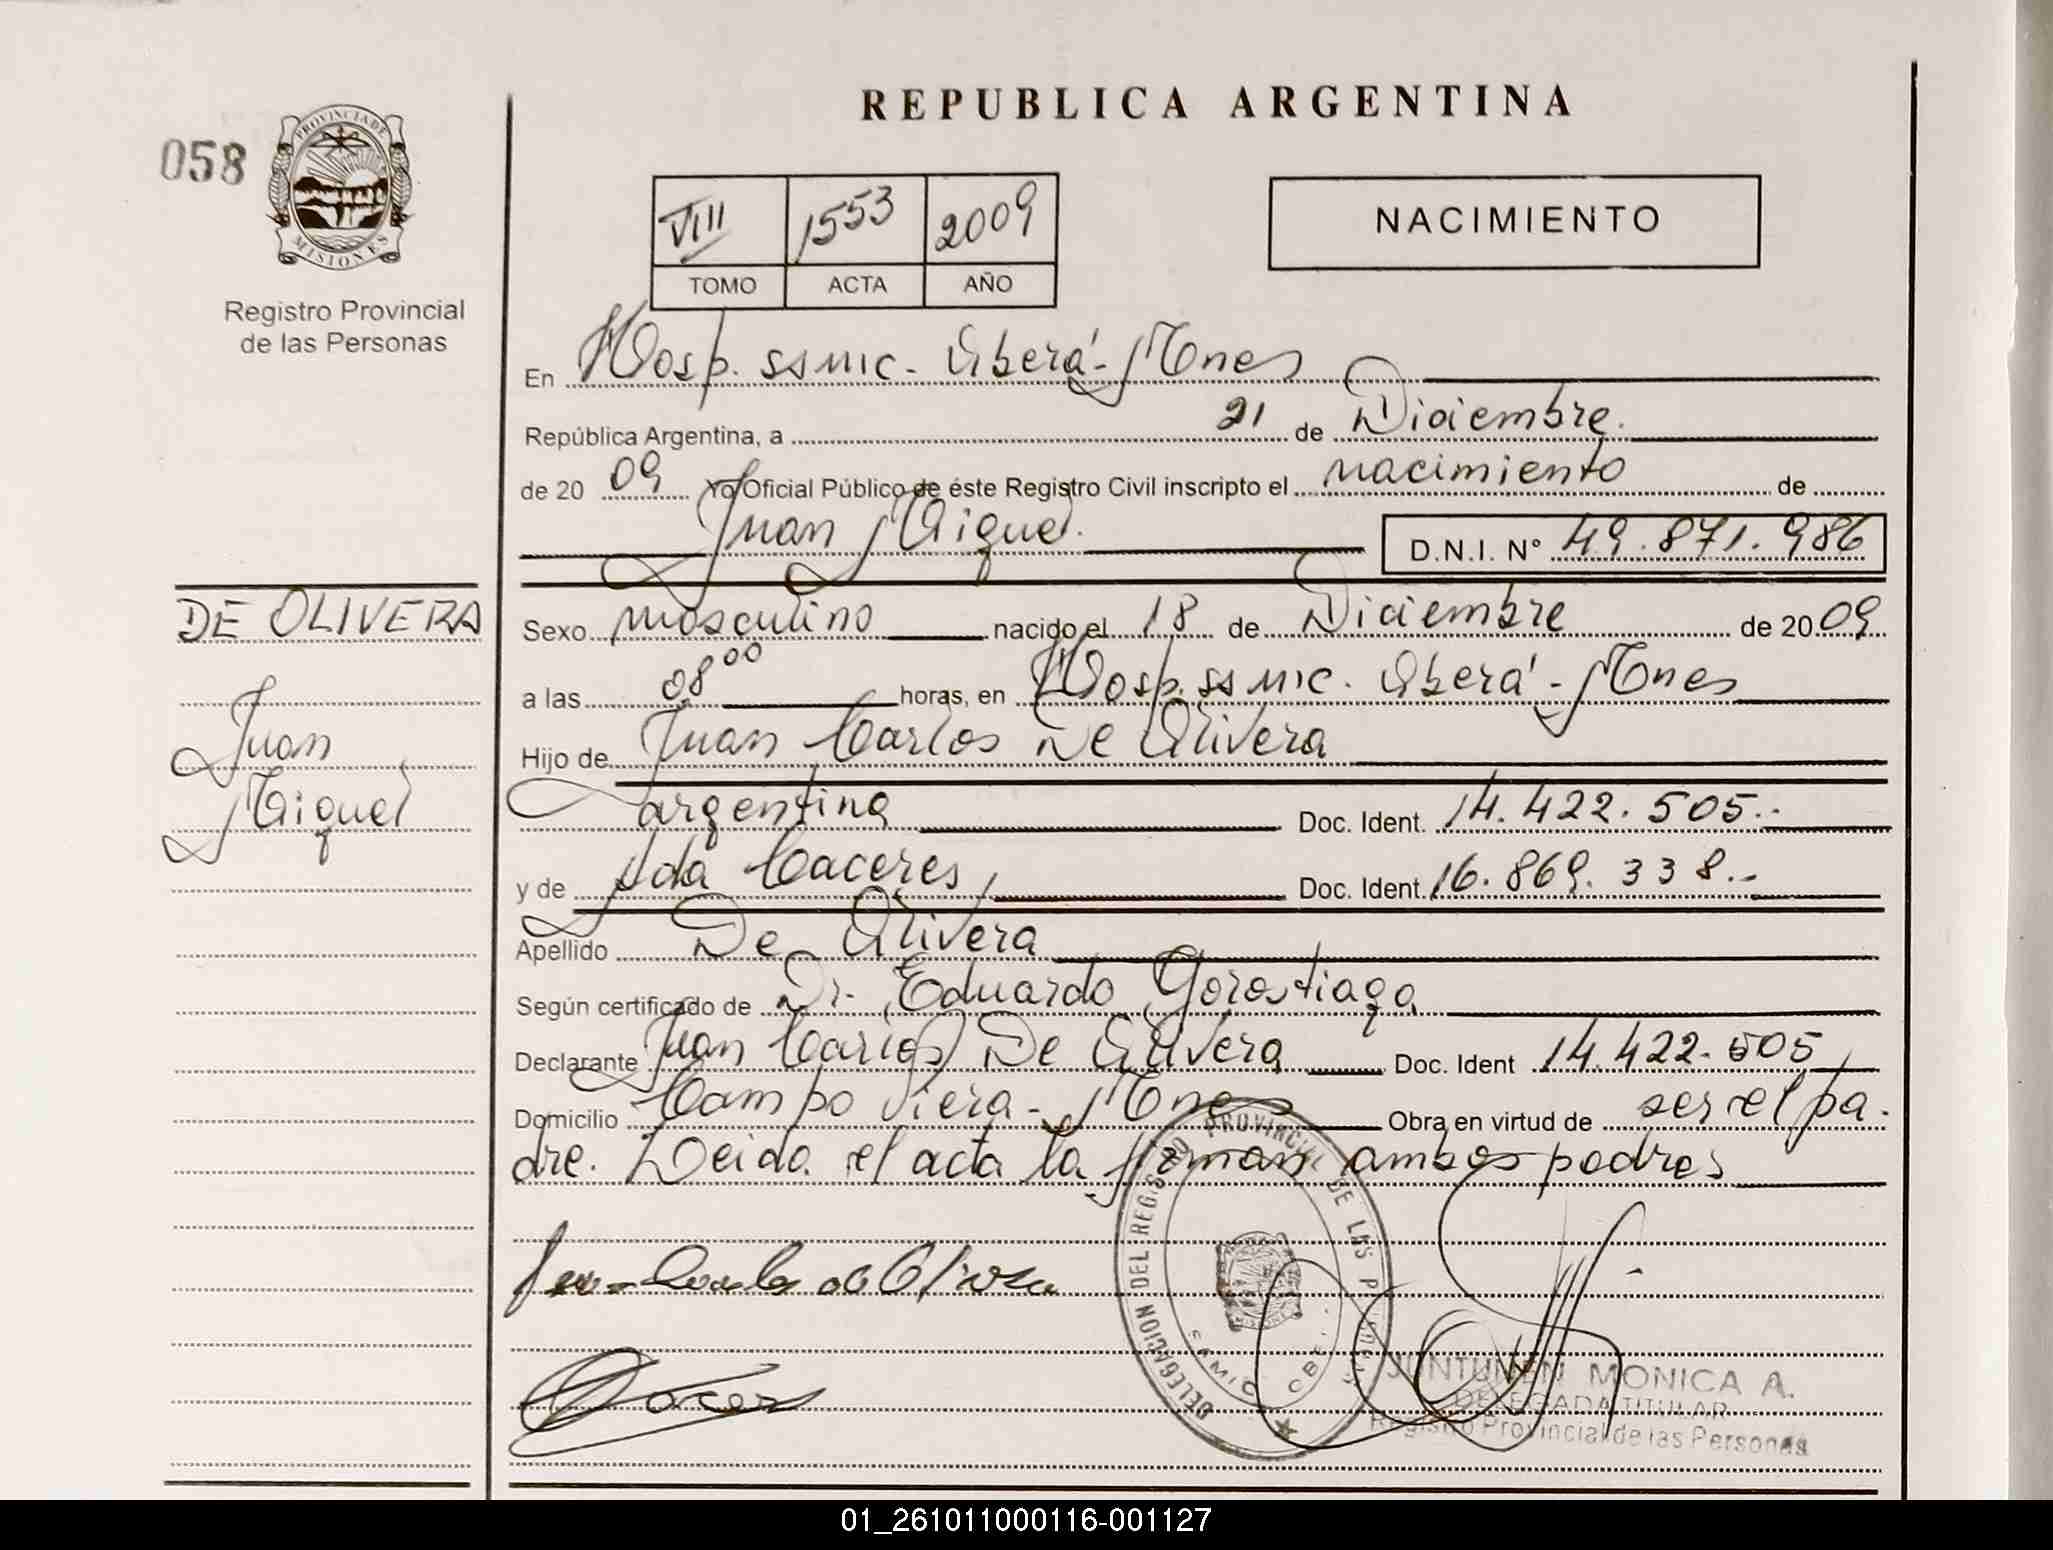 REPUBLICA ARGENTINA
058
PROVINCIA DE
MISIONES
Registro Provincial
de las Personas
VIII 1553 2009
TOMO ACTA AÑO
NACIMIENTO
En Hosp. SSMIC. Oberá - Mnes
República Argentina, a 21 de Diciembre.
de 20 09 Yo Oficial Público de éste Registro Civil inscripto el nacimiento de
Juan Miguel. D.N.I. N° 49.871.986
DE OLIVERA
Juan
Miguel
Sexo masculino nacido el 18 de Diciembre de 20 09
a las 08 00 horas, en Hosp. SSMIC. Oberá - Mnes
Hijo de Juan Carlos De Olivera
argentina Doc. Ident. 14.422.505.-
y de Ada Caceres, Doc. Ident. 16.869.338.-
Apellido De Olivera
Según certificado de Dr. Eduardo Gorostiaga
Declarante Juan Carlos De Olivera Doc. Ident 14.422.505
Domicilio Campo Viera - Mnes Obra en virtud de ser el pa-
dre. Leida el acta la firman ambos padres
DELEGACION DEL REGISTRO PROVINCIAL DE LAS PERSONAS
JUNTUNEN MONICA A.
DELEGADA TITULAR
Registro Provincial de las Personas
01_261011000116-001127